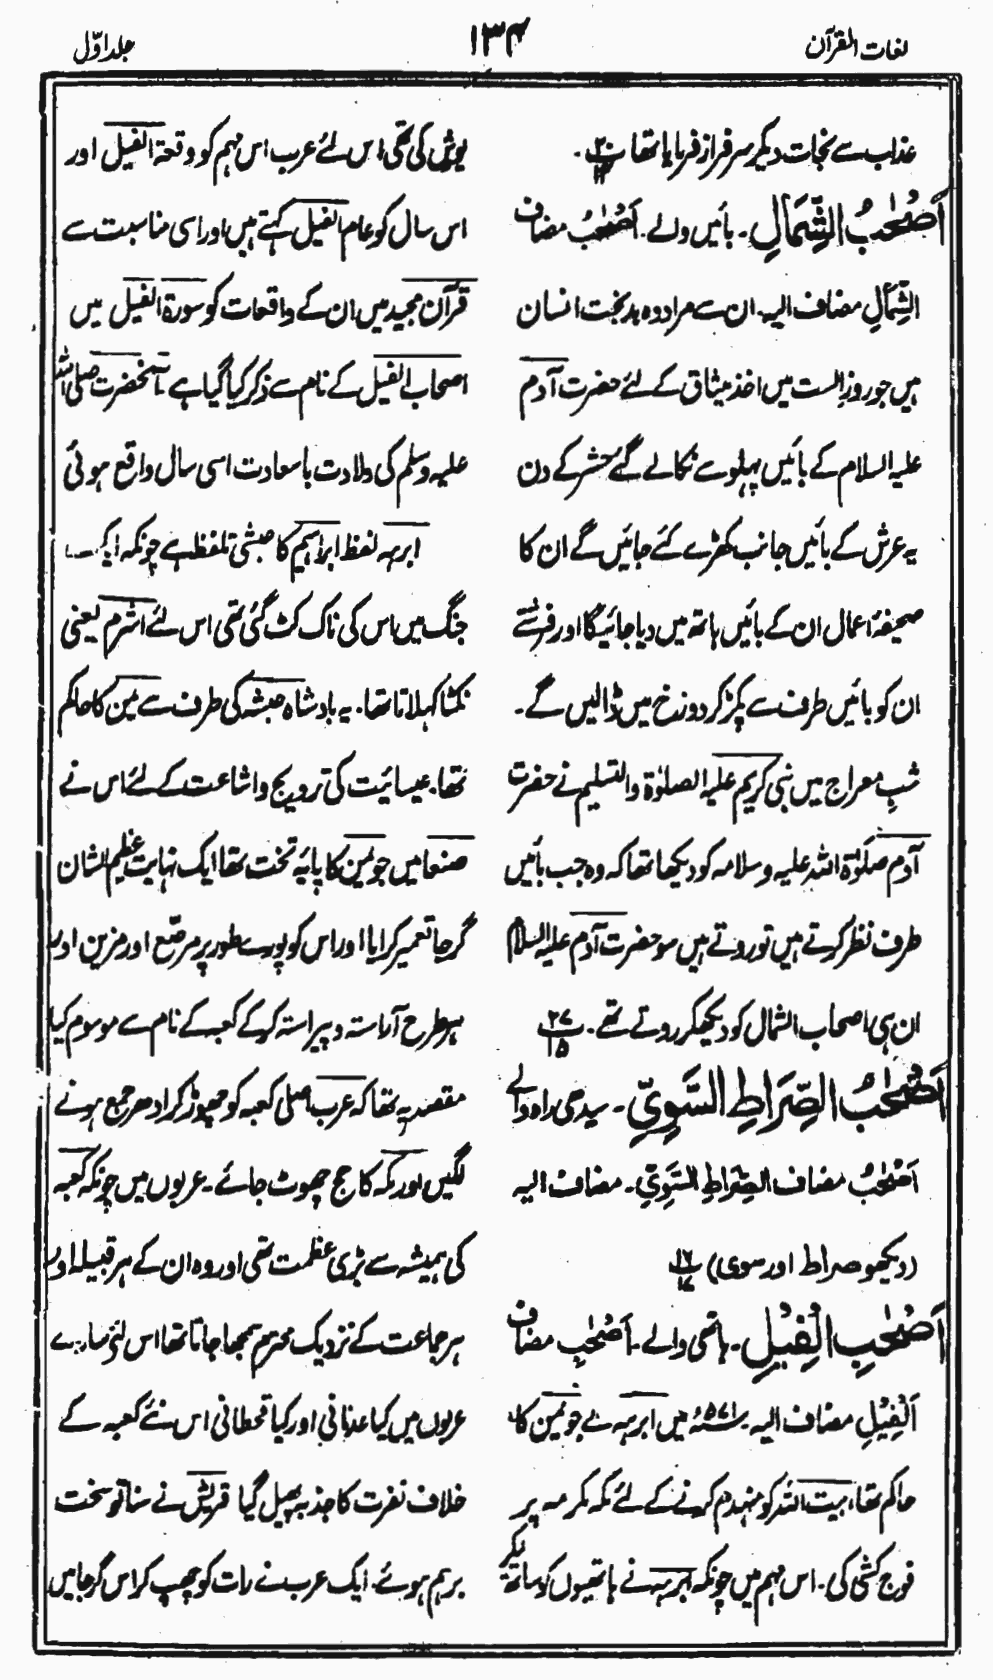 لغات القرآن
۱۳۴
جلد اوّل
عذاب سے نجات دیکر سرفراز فرمایا تھا ۲۰/۱۲ ۔
اَصْحٰبُ الشِّمَالِ ۔ بائیں والے ۔ اَصْحٰبُ مضاف
الشِّمَالِ مضاف الیہ ۔ ان سے مراد وہ بدبخت انسان
ہیں جو روز الست میں اخذ میثاق کے لئے حضرت آدم
علیہ السلام کے بائیں پہلو سے نکالے گئے حشر کے دن
یہ عرش کے بائیں جانب کھڑے کئے جائیں گے ان کا
صحیفۂ اعمال ان کے بائیں ہاتھ میں دیا جائیگا اور فرشتے
ان کو بائیں طرف سے پکڑ کر دوزخ میں ڈالیں گے ۔
شبِ معراج میں نبی کریم علیہ الصلوٰۃ والتسلیم نے حضرت
آدم صلوٰۃ اللہ علیہ وسلامہ کو دیکھا تھا کہ وہ جب بائیں
طرف نظر کرتے ہیں تو روتے ہیں سو حضرت آدم علیہ السلام
ان ہی اصحاب الشمال کو دیکھکر روتے تھے ۔ ۲۷/۱۵
اَصْحٰبُ الصِّرَاطِ السَّوِیِّ ۔ سیدھی راہ والے
اَصْحٰبُ مضاف الصِّرَاطِ السَّوِیِّ ۔ مضاف الیہ
(دیکھو صراط اور سوی) ۱۶/۱۷
اَصْحٰبِ الْفِیْلِ ۔ ہاتھی والے ۔ اَصْحٰبِ مضاف
اَلْفِیْلِ مضاف الیہ ۔ ۵۷۱ء میں ابرہہ نے جو یمن کا
حاکم تھا، بیت اللہ کو منہدم کرنے کے لئے مکہ مکرمہ پر
فوج کشی کی ۔ اس مہم میں چونکہ ابرہہ نے ہاتھیوں کو ساتھ لیکر
یورش کی تھی اس لئے عرب اس مہم کو وقعۃ الفیل اور
اس سال کو عام الفیل کہتے ہیں اور اسی مناسبت سے
قرآن مجید میں ان کے واقعات کو سورۃ الفیل میں
اصحاب الفیل کے نام سے ذکر کیا گیا ہے ۔ آنحضرت صلی اللہ
علیہ وسلم کی ولادت باسعادت اسی سال واقع ہوئی
ابرہہ لفظ ابراہیم کا حبشی تلفظ ہے چونکہ ایک
جنگ میں اس کی ناک کٹ گئی تھی اس لئے اشرم یعنی
نکٹا کہلاتا تھا ۔ یہ بادشاہ حبشہ کی طرف سے یمن کا حاکم
تھا ۔ عیسائیت کی ترویج و اشاعت کے لئے اس نے
صنعا میں جو یمن کا پایۂ تخت تھا ایک نہایت عظیم الشان
گرجا تعمیر کرایا اور اس کو پورے طور پر مرصّع اور مزین اور
ہر طرح آراستہ و پیراستہ کر کے کعبہ کے نام سے موسوم کیا
مقصد یہ تھا کہ عرب اصلی کعبہ کو چھوڑ کر ادھر جمع ہونے
لگیں اور مکہ کا حج چھوٹ جائے ۔ عربوں میں چونکہ کعبہ
کی ہمیشہ سے بڑی عظمت تھی اور وہ ان کے ہر قبیلہ اور
ہر جماعت کے نزدیک محترم سمجھا جاتا تھا اس لئے سارے
عربوں میں کیا عدنانی اور کیا قحطانی اس نئے کعبہ کے
خلاف نفرت کا جذبہ پھیل گیا قریش نے سنا تو سخت
برہم ہوئے ۔ ایک عرب نے رات کو چھپ کر اس گرجا میں